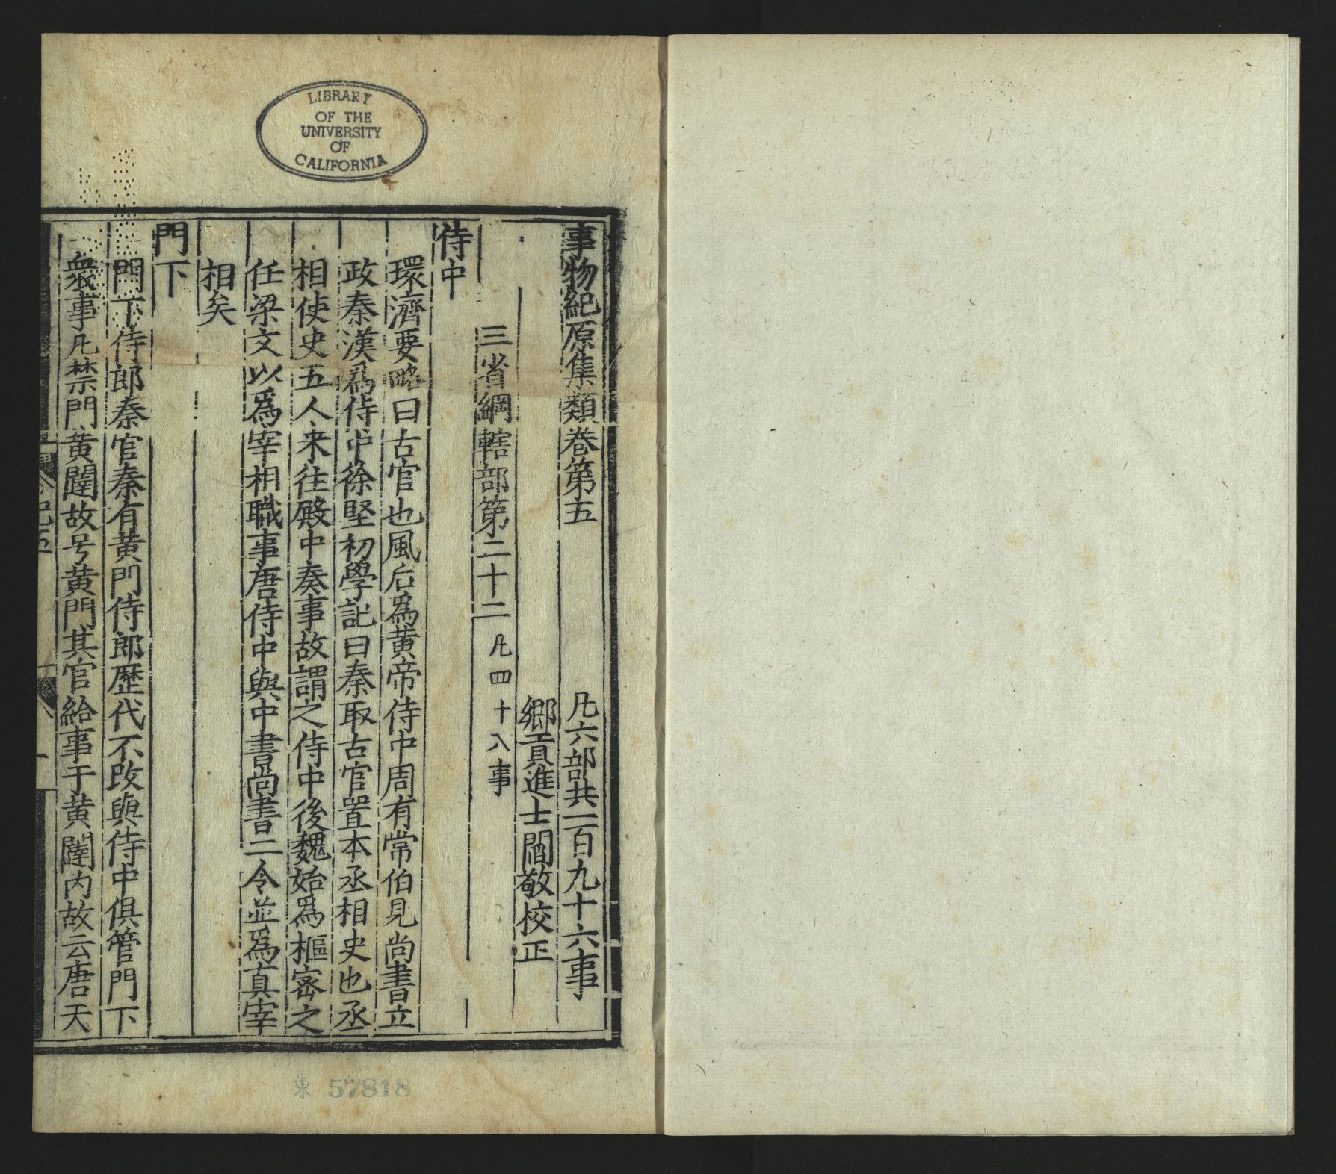 LIBRARY
OF THE
UNIVERSITY
OF
CALIFORNIA
事物紀原集類卷第五 凡六部共一百九十六事
鄉貢進士閻敬校正
三省綱轄部第二十二 凡四十八事
侍中
環濟要略曰古官也風后爲黄帝侍中周有常伯見尚書立
政秦漢爲侍中徐堅初學記曰秦取古官置本丞相史也丞
相使史五人来往殿中奏事故謂之侍中後魏始爲樞密之
任梁文以爲宰相職事唐侍中與中書尚書二令並爲真宰
相矣
門下
門下侍郎秦官秦有黄門侍郎歷代不改與侍中俱管門下
衆事凡禁門黄闥故号黄門其官給事于黄闥内故云唐天
東 57818